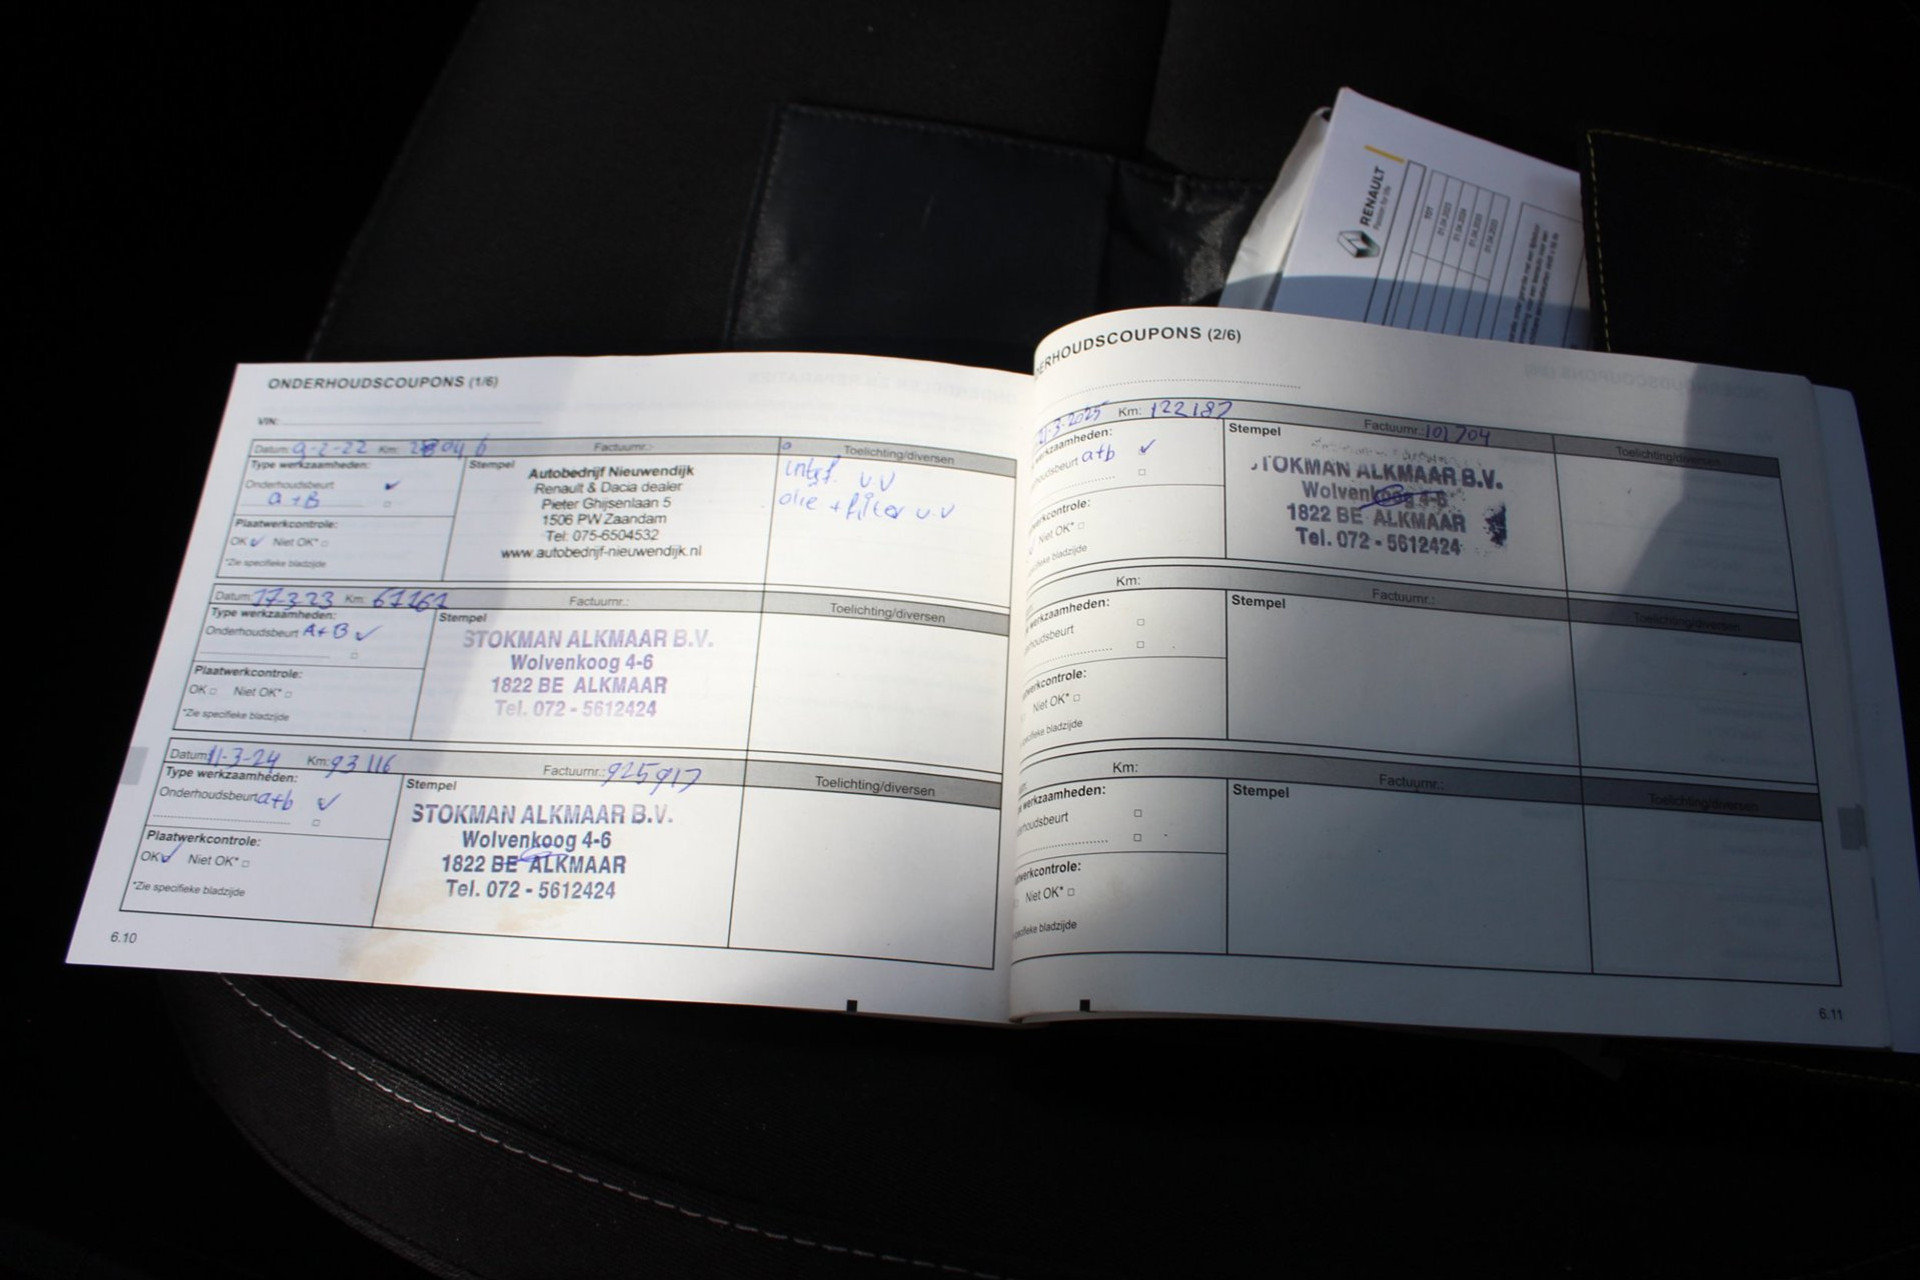 RENAULT
Passion for life
TOT
01.04.2023
01.04.2024
01.04.2025
ONDERHOUDSCOUPONS (1/6)
VIN:
Datum: 9-2-22 Km: Factuurnr.: Toelichting/diversen
Type werkzaamheden:
Onderhoudsbeurt ✓
a + B □
Plaatwerkcontrole:
OK ✓ Niet OK* □
*Zie specifieke bladzijde
Stempel
Autobedrijf Nieuwendijk
Renault & Dacia dealer
Pieter Ghijsenlaan 5
1506 PW Zaandam
Tel: 075-6504532
www.autobedrijf-nieuwendijk.nl
v.v
olie + filter v.v
Datum: 17-3-23 Km: 67161 Factuurnr.: Toelichting/diversen
Type werkzaamheden:
Onderhoudsbeurt A+B ✓
□
Plaatwerkcontrole:
OK □ Niet OK* □
*Zie specifieke bladzijde
Stempel
STOKMAN ALKMAAR B.V.
Wolvenkoog 4-6
1822 BE ALKMAAR
Tel. 072 - 5612424
Datum: 11-3-24 Km: 93 116 Factuurnr.: 925917 Toelichting/diversen
Type werkzaamheden:
Onderhoudsbeurt a+b ✓
□
Plaatwerkcontrole:
OK ✓ Niet OK* □
*Zie specifieke bladzijde
Stempel
STOKMAN ALKMAAR B.V.
Wolvenkoog 4-6
1822 BE ALKMAAR
Tel. 072 - 5612424
6.10
ERHOUDSCOUPONS (2/6)
-3-2025 Km: 122187 Factuurnr.: 101704 Toelichting/diversen
rkzaamheden:
houdsbeurt a+b ✓
□
erkcontrole:
Niet OK* □
specifieke bladzijde
Stempel
TOKMAN ALKMAAR B.V.
Wolvenkoog 4-6
1822 BE ALKMAAR
Tel. 072 - 5612424
Km: Factuurnr.: Toelichting/diversen
werkzaamheden:
erhoudsbeurt □
□
werkcontrole:
Niet OK* □
specifieke bladzijde
Stempel
Km: Factuurnr.: Toelichting/diversen
werkzaamheden:
erhoudsbeurt □
□
atwerkcontrole:
Niet OK* □
specifieke bladzijde
Stempel
6.11